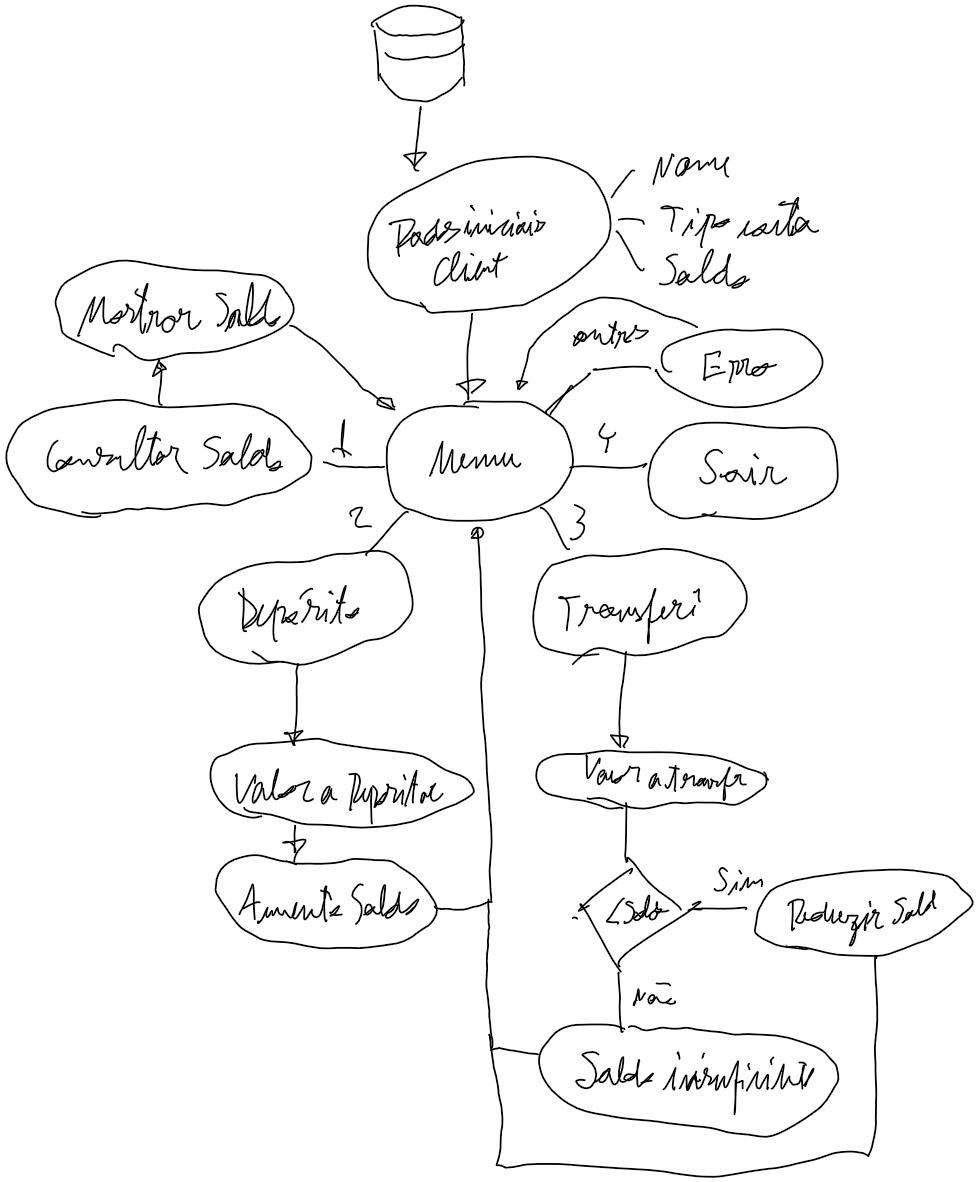 Dados iniciais
Client
Nome
Tipo conta
Saldo
Mostrar Sald
outros
Erro
Consultar Saldo
1
Menu
4
Sair
2
3
Depósito
Transferi
Valor a Depositar
Valor a transfr
Aumenta Saldo
<Saldo
Sim
Reduzir Sald
Não
Saldo insuficiente